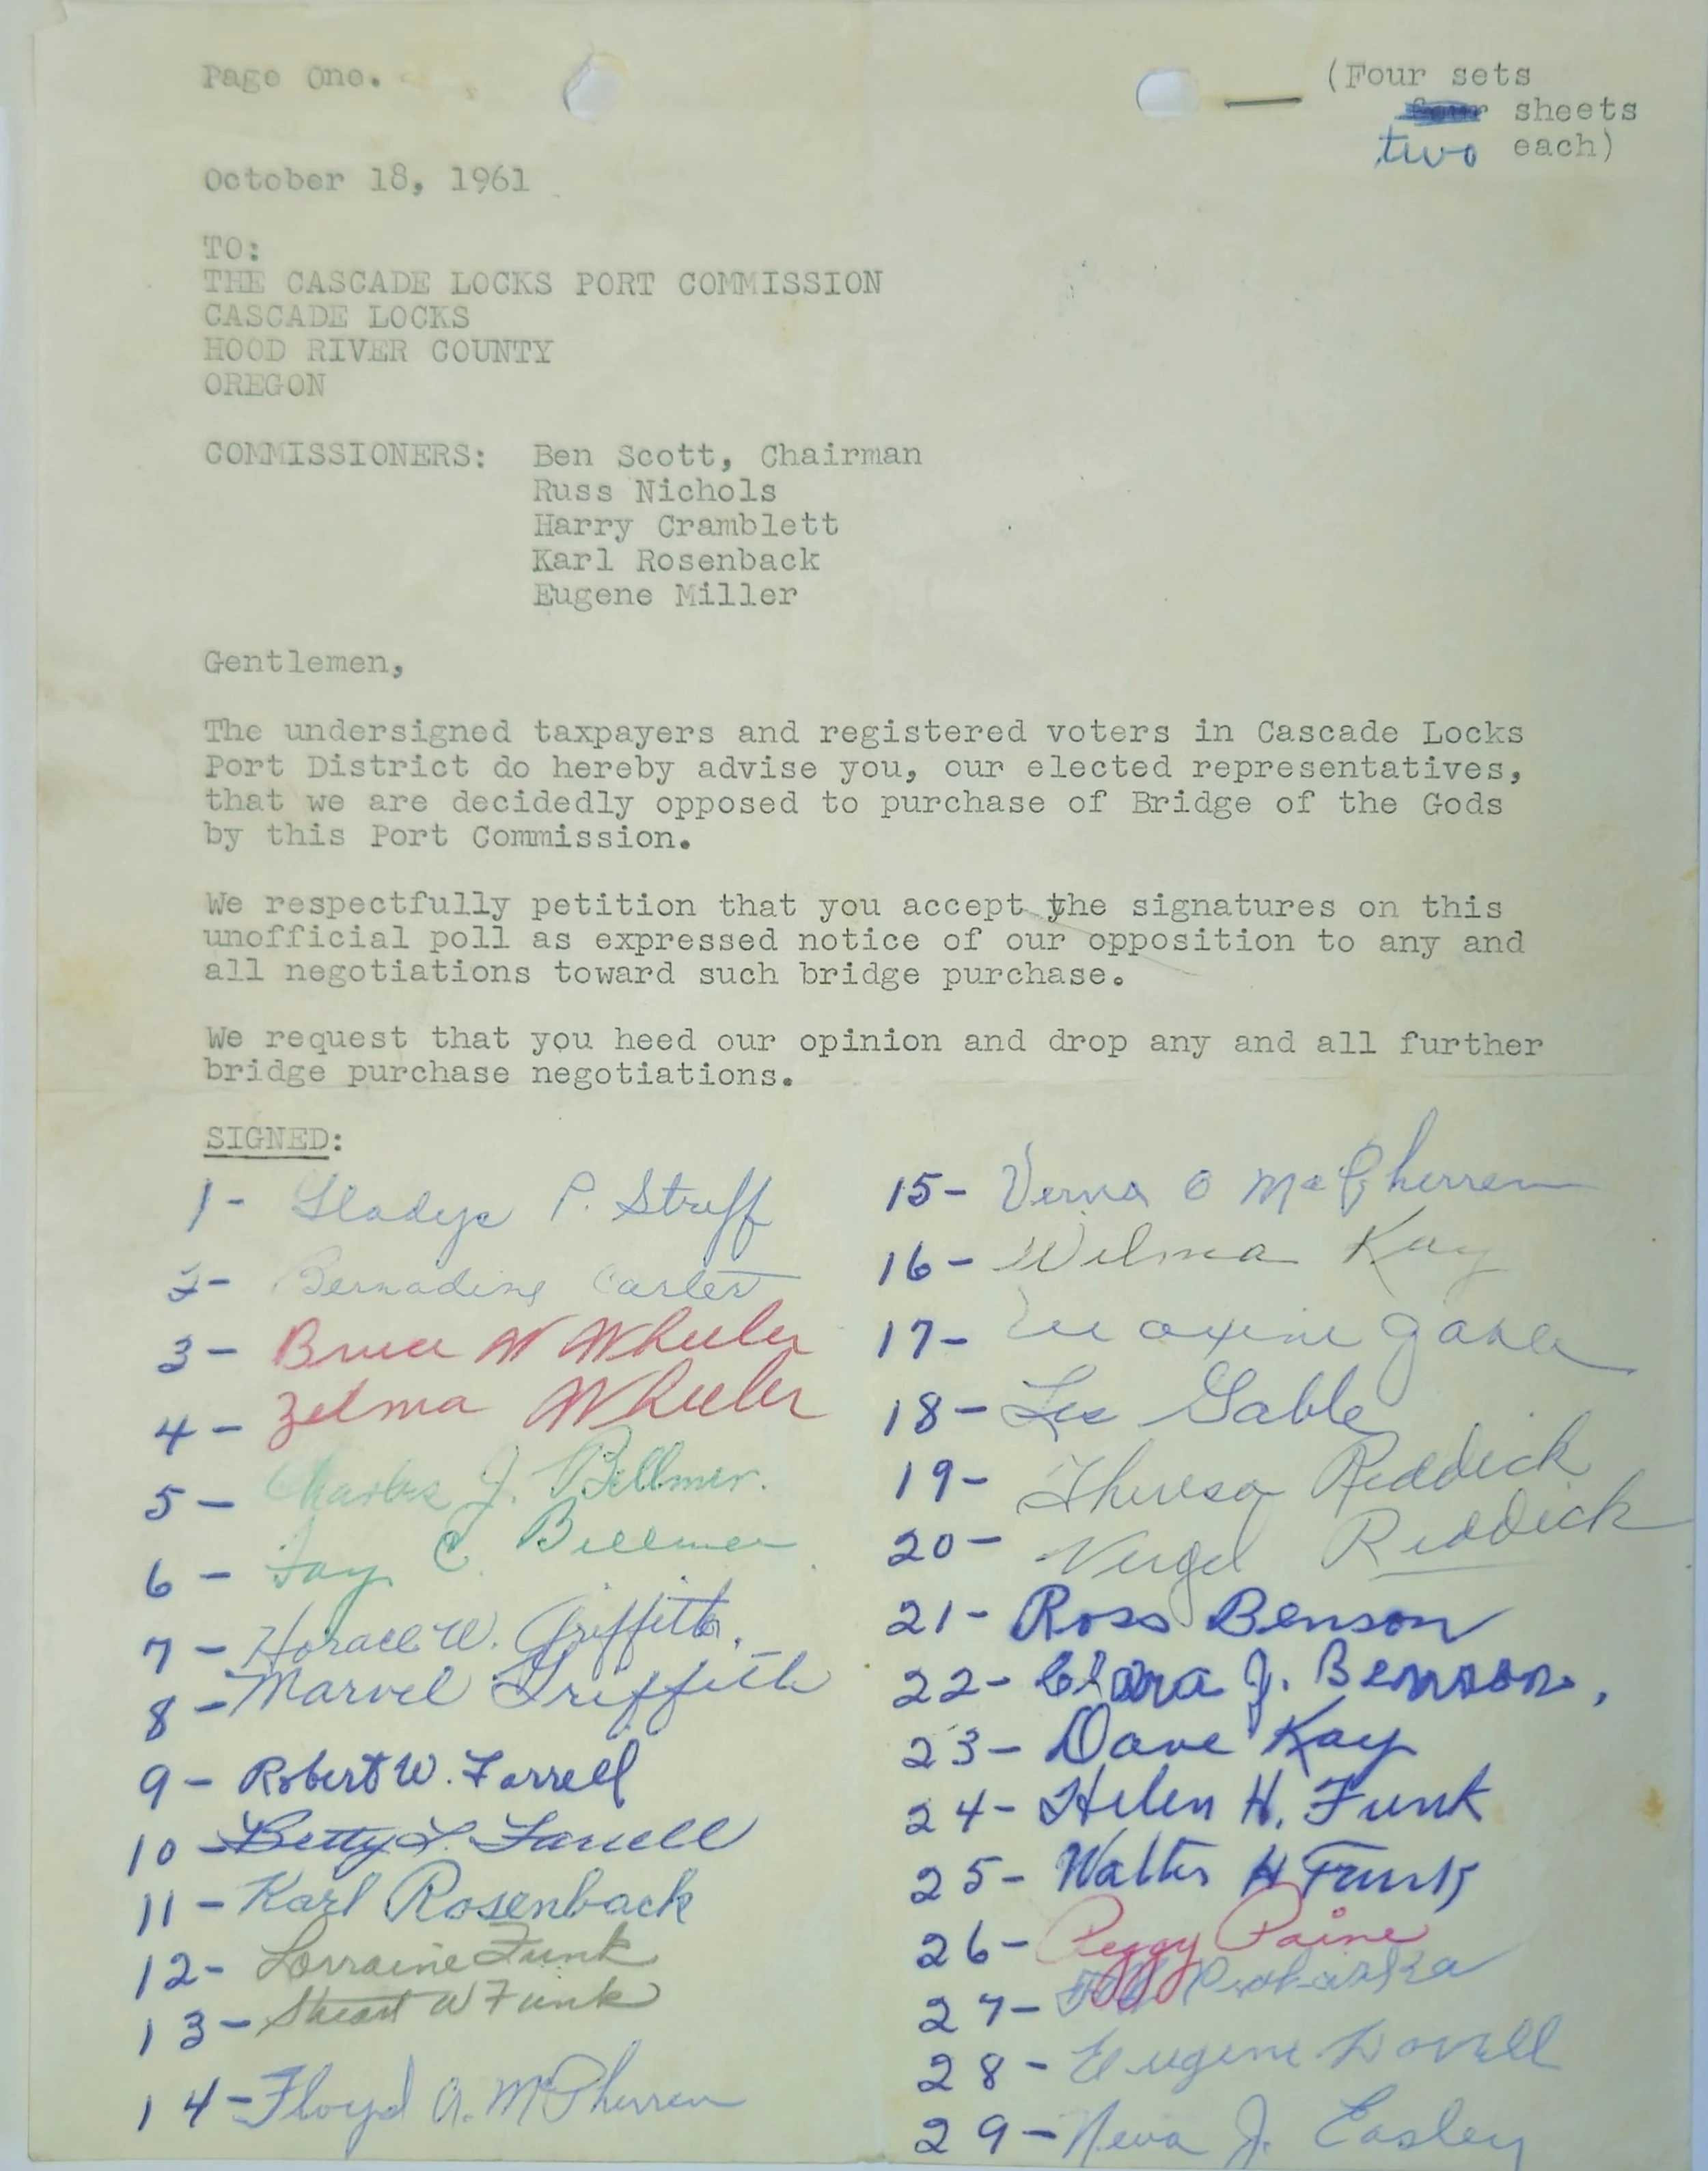 Page One.
(Four sets
sheets
two each)
October 18, 1961
TO:
THE CASCADE LOCKS PORT COMMISSION
CASCADE LOCKS
HOOD RIVER COUNTY
OREGON
COMMISSIONERS: Ben Scott, Chairman
Russ Nichols
Harry Cramblett
Karl Rosenback
Eugene Miller
Gentlemen,
The undersigned taxpayers and registered voters in Cascade Locks
Port District do hereby advise you, our elected representatives,
that we are decidedly opposed to purchase of Bridge of the Gods
by this Port Commission.
We respectfully petition that you accept the signatures on this
unofficial poll as expressed notice of our opposition to any and
all negotiations toward such bridge purchase.
We request that you heed our opinion and drop any and all further
bridge purchase negotiations.
SIGNED:
1- Gladys P. Struff
2- Bernadine Carter
3- Bruce W Wheeler
4- Zelma Wheeler
5- Charles J. Bellmer.
6- Fay C. Bellmer
7- Horace W. Griffith.
8- Marvel Griffith
9- Robert W. Farrell
10- Betty L. Farrell
11- Karl Rosenback
12- Lorraine Funk
13- Stuart W Funk
14- Floyd A. McPherren
15- Verna O McPherren
16- Wilma Kay
17- Maxine Gable
18- Les Gable
19- Theresa Reddick
20- Virgel Reddick
21- Ross Benson
22- Clara J. Benson,
23- Dave Kay
24- Helen H. Funk
25- Walter H Funk
26- Peggy Paine
27-
28- Eugene Dovell
29- Neva J. Easley